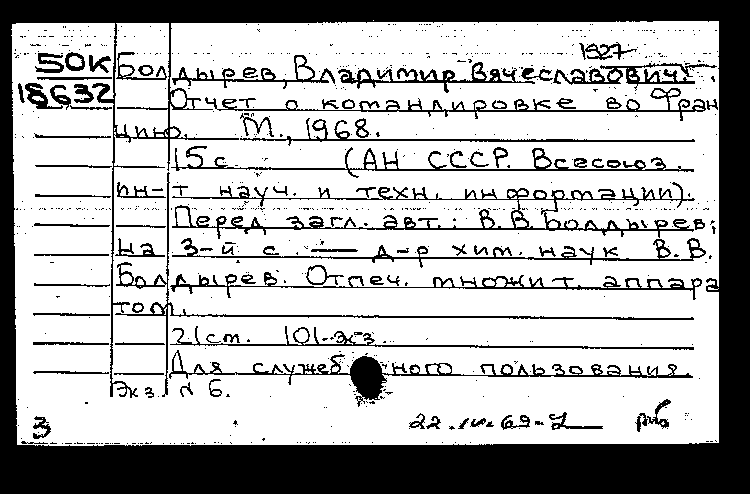 1927
50К Болдырев, Владимир Вячеславович.
18632 Отчет о командировке во Фран
цию. М., 1968.
15 с (АН СССР. Всесоюз.
ин-т науч. и техн. информации).
Перед загл. авт.: В.В. Болдырев;
на 3-й с. — д-р хим. наук В.В.
Болдырев. Отпеч. множит. аппара
том.
21см. 101 экз.
Для служебного пользования.
Экз. № 6.
3